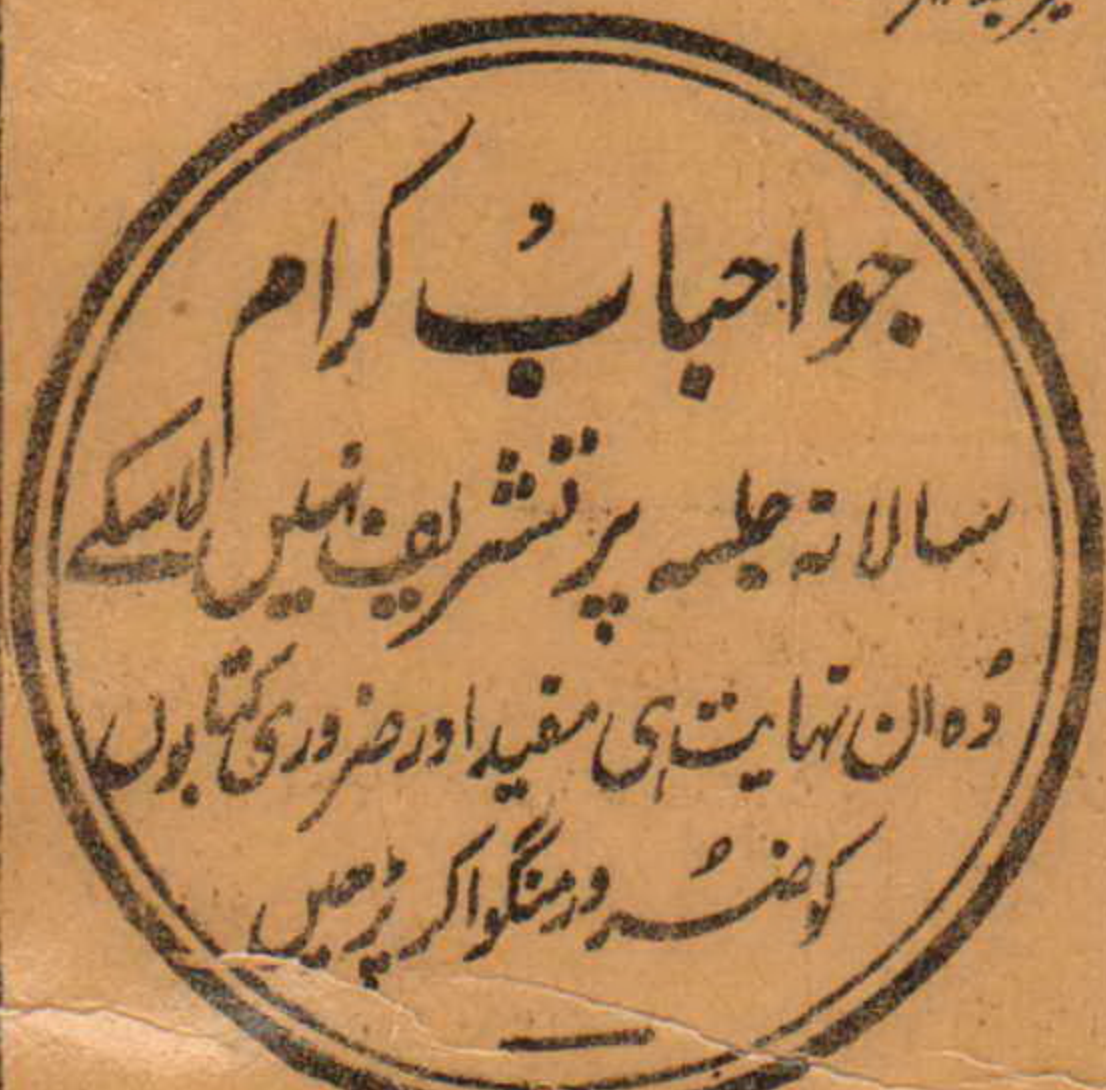 جو احبابُ کرام
سالانہ جلسہ پر تشریف نہیں لاسکے
وُہ ان نہایت ہی مفید اور ضروری کتابوں
کو ضرور منگوا کر پڑھیں